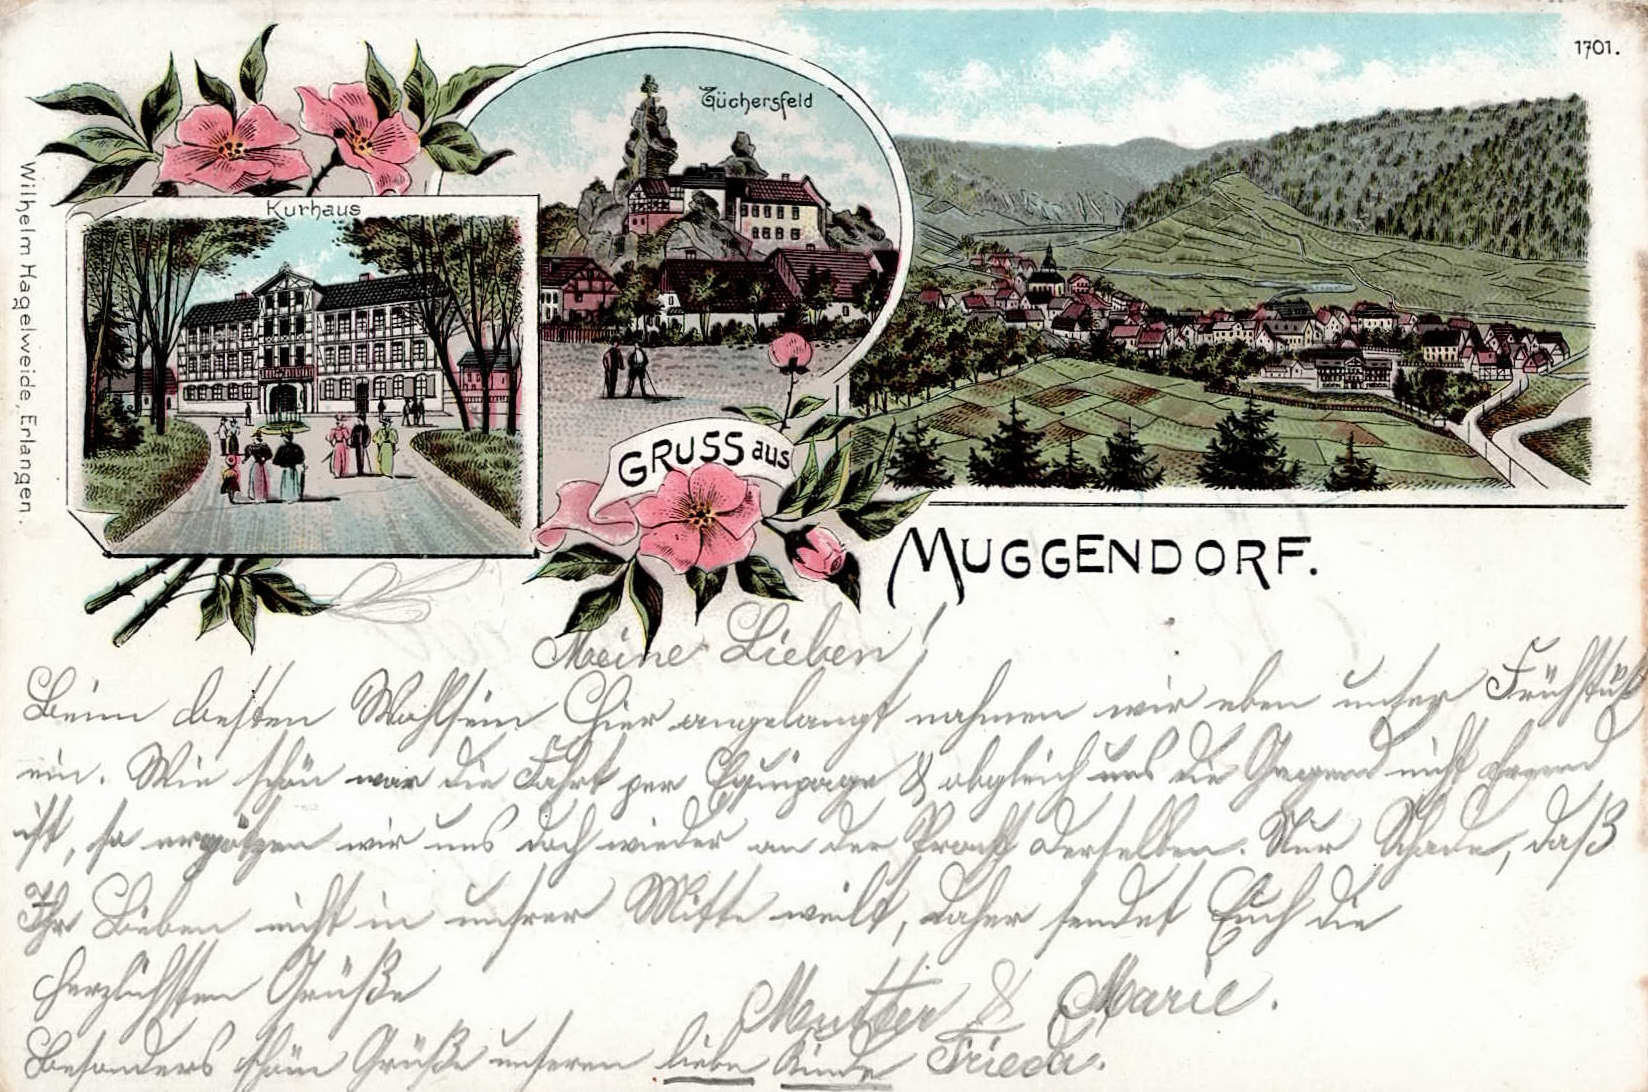 1701.
Tüchersfeld
Kurhaus
Wilhelm Hagelweide, Erlangen.
GRUSS aus
MUGGENDORF.
Meine Lieben!
Beim besten Wohlsein hier angelangt nahmen wir eben unser Frühstük
ein. Wie schön war die Fahrt per Equipage & obgleich uns die Gegend nicht fremd
ist, so ergötzen wir uns doch wieder an der Pracht derselben. Nur Schade, daß
Ihr Lieben nicht in unsrer Mitte weilt, daher sendet Euch die
herzlichsten Grüße
Mutter & Marie.
Besonders schöne Grüße unseren liebe Kinde Frieda.